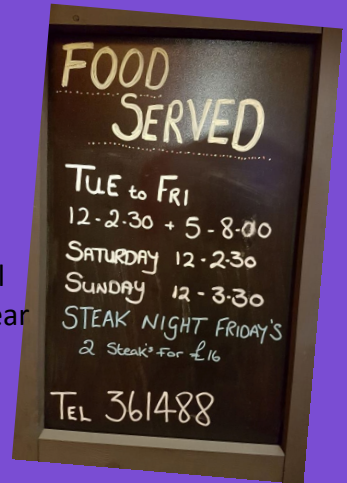 FOOD
SERVED
TUE to FRI
12-2.30 + 5-8.00
SATURDAY 12-2.30
SUNDAY 12-3.30
STEAK NIGHT FRIDAY'S
2 Steak's For £16
TEL 361488